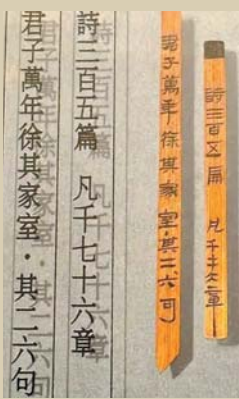 詩三百五篇 凡千七十六章
君子萬年徐其家室·其二六句
詩三百五扁 凡千七十六章
君子萬年徐其家室·其二六句